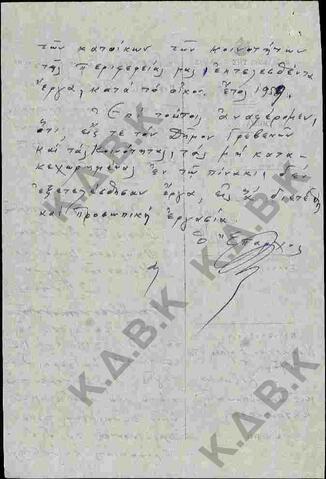 τῶν κατοίκων τῶν κοινοτήτων
τῆς περιφερείας μας, ἐκτελεσθέντα
ἔργα κατὰ τὸ οἰκον. ἔτος 1959.
Ἐπὶ τούτοις ἀναφέρομεν,
ὅτι εἰς τε τὸν Δῆμον Γρεβενῶν
καὶ τὰς Κοινότητας, τὰς μὴ κατα-
κεχωρημένας ἐν τῷ πίνακι, δὲν
ἐξετελέσθησαν ἔργα, εἰς ἃ διετέθη
καὶ προσωπικὴ ἐργασία.
Ὁ Ἔπαρχος
Κ.Δ.Β.Κ
Κ.Δ.Β.Κ
Κ.Δ.Β.Κ